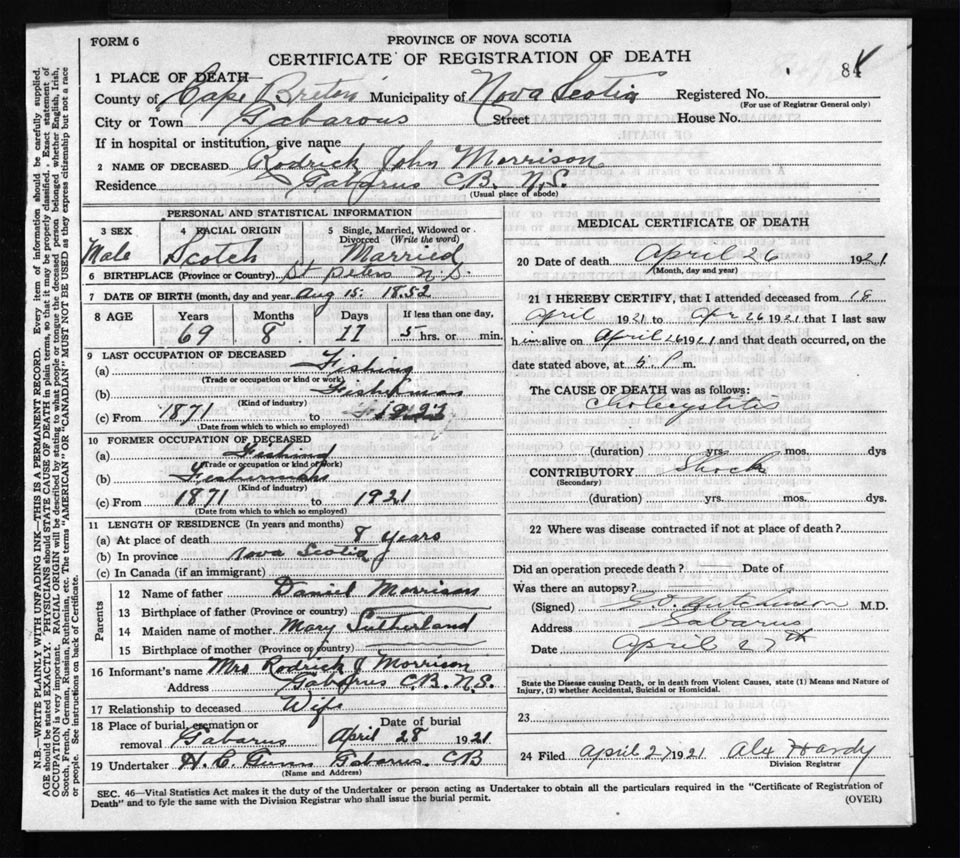 FORM 6
PROVINCE OF NOVA SCOTIA
CERTIFICATE OF REGISTRATION OF DEATH
84
1 PLACE OF DEATH
County of Cape Breton Municipality of Nova Scotia Registered No.
(For use of Registrar General only)
City or Town Gabarous Street House No.
If in hospital or institution, give name
2 NAME OF DECEASED Rodrick John Morrison
Residence Gabarus C.B. N.S.
(Usual place of abode)
PERSONAL AND STATISTICAL INFORMATION
3 SEX 4 RACIAL ORIGIN 5 Single, Married, Widowed or Divorced (Write the word)
Male Scotch Married
6 BIRTHPLACE (Province or Country) St Peters N.S.
7 DATE OF BIRTH (month, day and year) Aug 15: 1852
8 AGE Years Months Days If less than one day,
69 8 11 5 hrs. or min.
9 LAST OCCUPATION OF DECEASED
(a) Fishing
(Trade or occupation or kind of work)
(b) Fisherman
(Kind of industry)
(c) From 1871 to
(Date from which to which so employed)
10 FORMER OCCUPATION OF DECEASED
(a) Fishing
(Trade or occupation or kind of work)
(b) Fisherman
(Kind of industry)
(c) From 1871 to 1921
(Date from which to which so employed)
11 LENGTH OF RESIDENCE (In years and months)
(a) At place of death 8 years
(b) In province Nova Scotia
(c) In Canada (if an immigrant)
Parents
12 Name of father Daniel Morrison
13 Birthplace of father (Province or country)
14 Maiden name of mother Mary Sutherland
15 Birthplace of mother (Province or country)
16 Informant's name Mrs Rodrick J Morrison
Address Gabarus C.B. N.S.
17 Relationship to deceased Wife
18 Place of burial, cremation or removal Gabarus
Date of burial April 28 1921
19 Undertaker H. C. Gabarus. CB
(Name and Address)
MEDICAL CERTIFICATE OF DEATH
20 Date of death April 26 1921
(Month, day and year)
21 I HEREBY CERTIFY, that I attended deceased from 18
April 1921 to Apr 26 1921 that I last saw
him alive on April 26 1921 and that death occurred, on the
date stated above, at 5. P. m.
The CAUSE OF DEATH was as follows:
Cholecystitis
(duration) yrs. mos. dys
CONTRIBUTORY Shock
(Secondary)
(duration) yrs. mos. dys.
22 Where was disease contracted if not at place of death?
Did an operation precede death? Date of
Was there an autopsy?
(Signed) M.D.
Address Gabarus
Date April 27th
State the Disease causing Death, or in death from Violent Causes, state (1) Means and Nature of
Injury, (2) whether Accidental, Suicidal or Homicidal.
23
24 Filed April 27 1921 Alex Hardy
Division Registrar
SEC. 46—Vital Statistics Act makes it the duty of the Undertaker or person acting as Undertaker to obtain all the particulars required in the "Certificate of Registration of
Death" and to fyle the same with the Division Registrar who shall issue the burial permit.
(OVER)
N.B.—WRITE PLAINLY WITH UNFADING INK—THIS IS A PERMANENT RECORD. Every item of information should be carefully supplied.
AGE should be stated EXACTLY. PHYSICIANS should STATE CAUSE OF DEATH in plain terms, so that it may be properly classified. Exact statement of
OCCUPATION is very important. RACIAL ORIGIN will be described by stating to what people or tongue the deceased person belonged whether English, Irish,
Scotch, French, German, Russian, Ruthenian, etc. The terms "AMERICAN" OR "CANADIAN" MUST NOT BE USED as they express citizenship but not a race
or people. See instructions on back of Certificate.